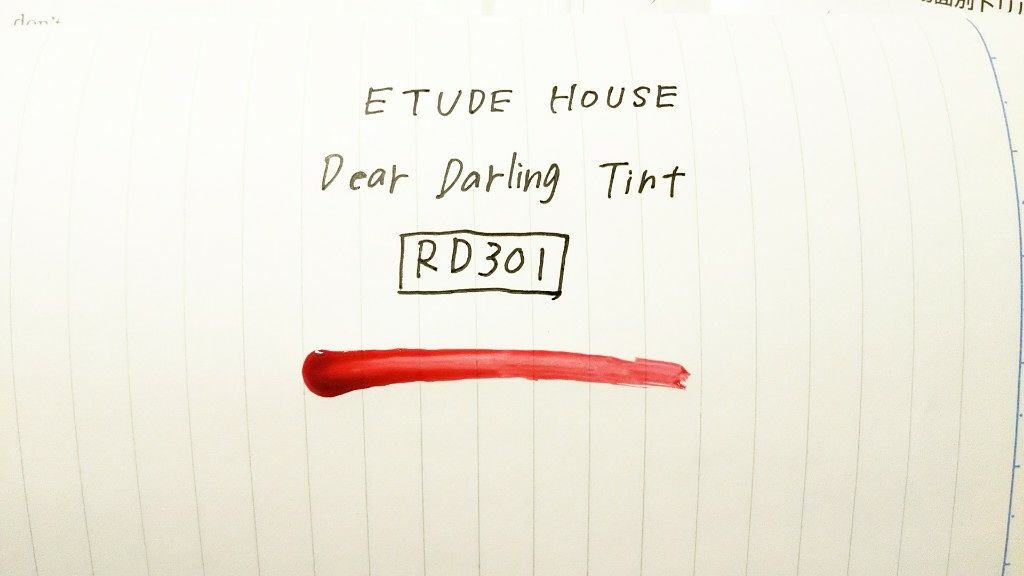 don't
ETUDE HOUSE
Dear Darling Tint
RD301